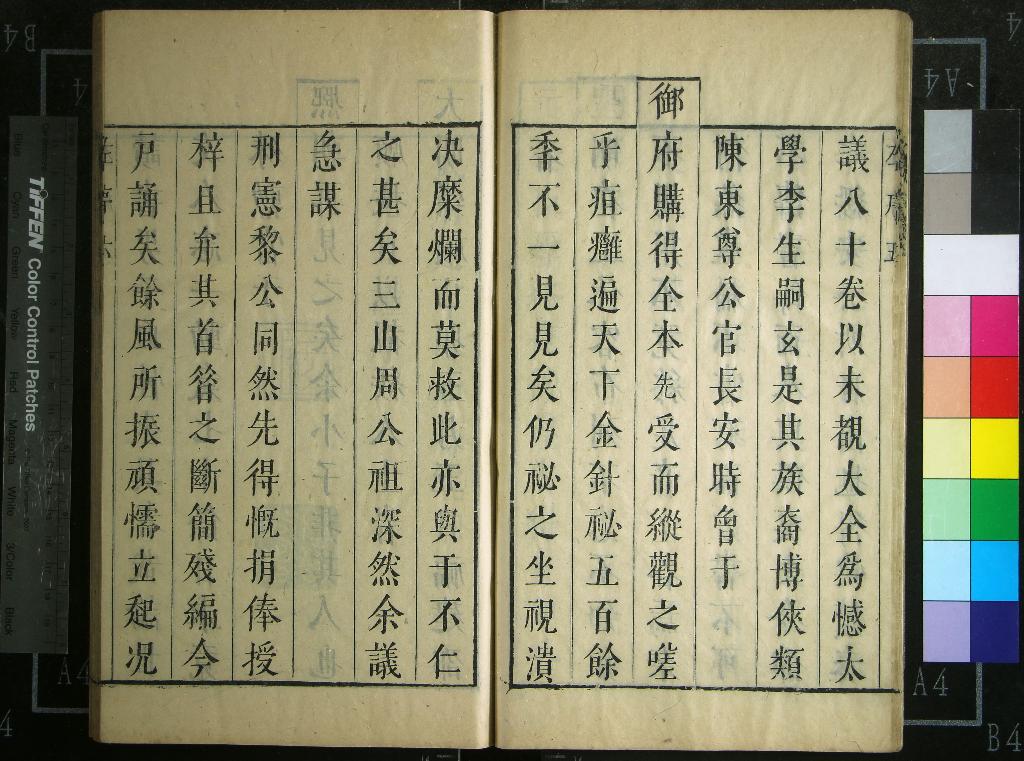 議八十卷以未覩大全爲憾太
學李生嗣玄是其族裔博俠類
陳東尊公官長安時曾于
御
府購得全本先受而縱觀之嗟
乎疽癰遍天下金針祕五百餘
季不一見見矣仍祕之坐視潰
决糜爛而莫救此亦與于不仁
之甚矣三山周公祖深然余議
急謀
刑憲黎公同然先得慨捐俸授
梓且弁其首簮之斷簡殘編今
戸誦矣餘風所振頑懦立起况
TIFFEN Color Control Patches
Blue Cyan Green Yellow Red Magenta White 3/Color Black
A4
B4